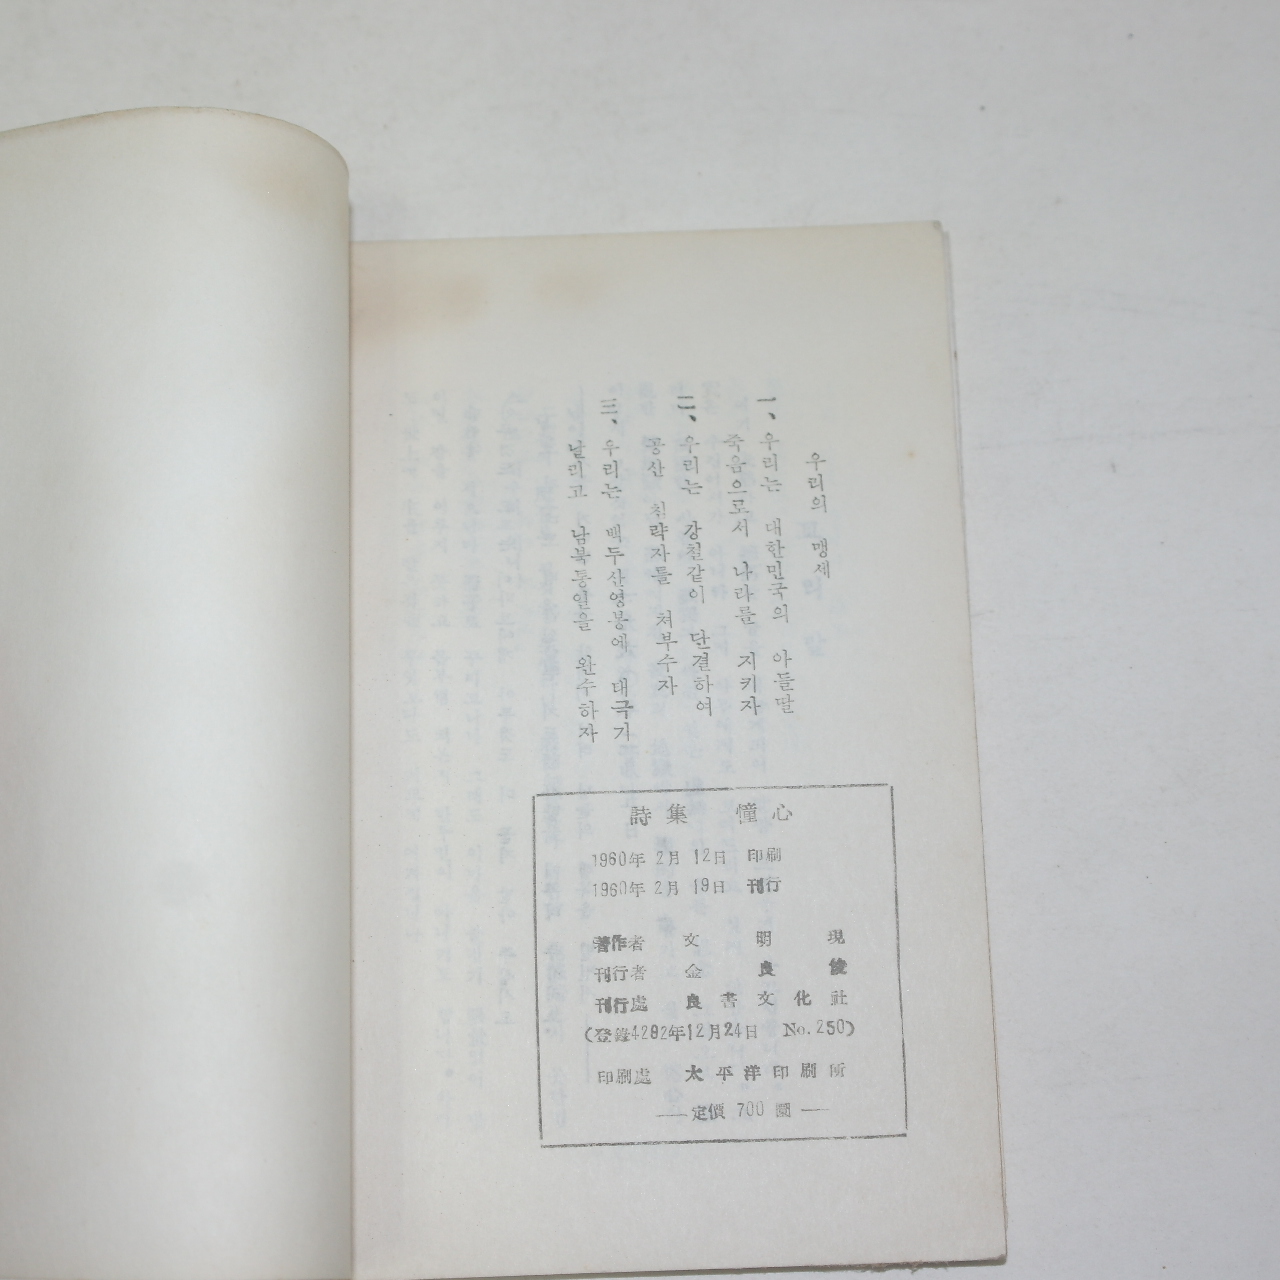 우리의 맹세
一、우리는 대한민국의 아들딸
죽음으로서 나라를 지키자
二、우리는 강철같이 단결하여
공산 침략자를 쳐부수자
三、우리는 백두산영봉에 태극기
날리고 남북통일을 완수하자
詩集 憧心
1960年 2月 12日 印刷
1960年 2月 19日 刊行
著作者 文明現
刊行者 金良俊
刊行處 良書文化社
(登錄4292年12月24日 No.250)
印刷處 太平洋印刷所
── 定價 700 圜 ──